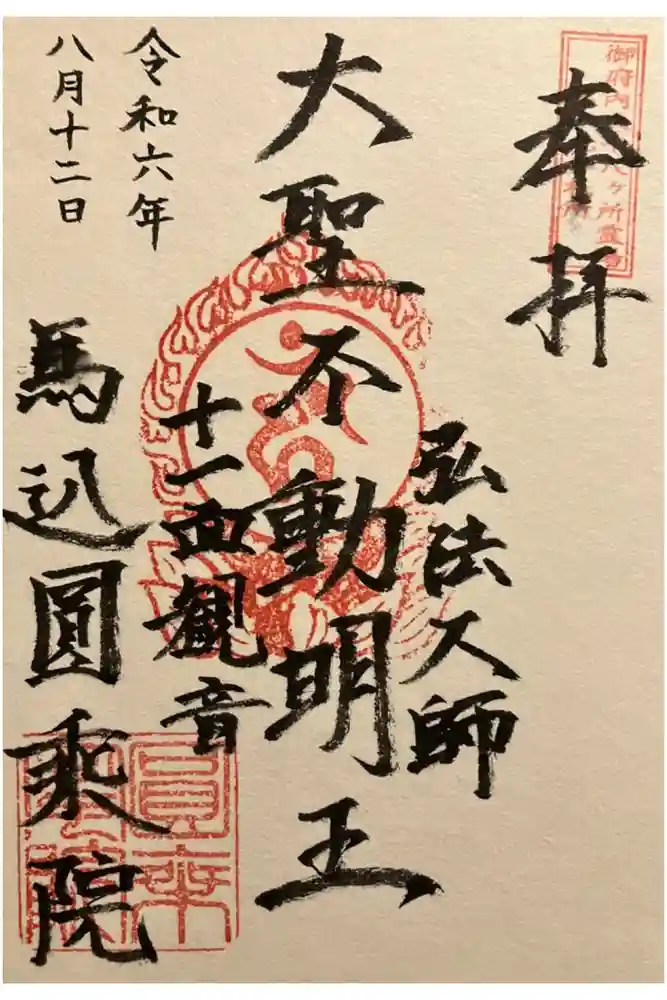 奉拝
御府内
八ヶ所霊
弘法大師
大聖不動明王
十一面観音
令和六年
八月十二日
馬込圓乗院